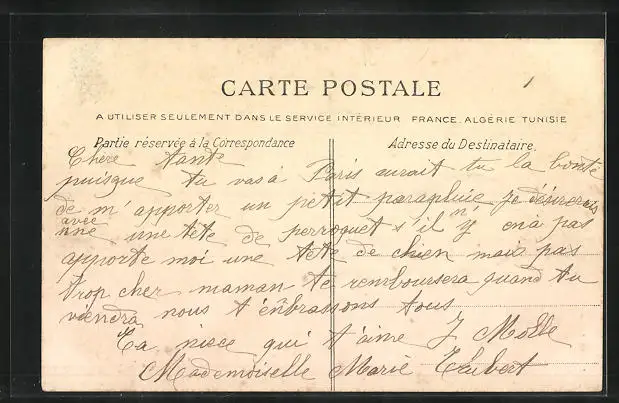 CARTE POSTALE
A UTILISER SEULEMENT DANS LE SERVICE INTÉRIEUR FRANCE. ALGÉRIE TUNISIE
Partie réservée à la Correspondance
Adresse du Destinataire.
Chère tante
puisque tu vas à Paris aurait tu la bonté
de m'apporter un petit parapluie je désirerais
avec
une une tête de perroquet s'il n'y en à pas
apporte moi une tête de chien mais pas
trop cher maman te remboursera quand tu
viendra nous t'enbrassons tous
Ta niece qui t'aime J
Mademoiselle Marie